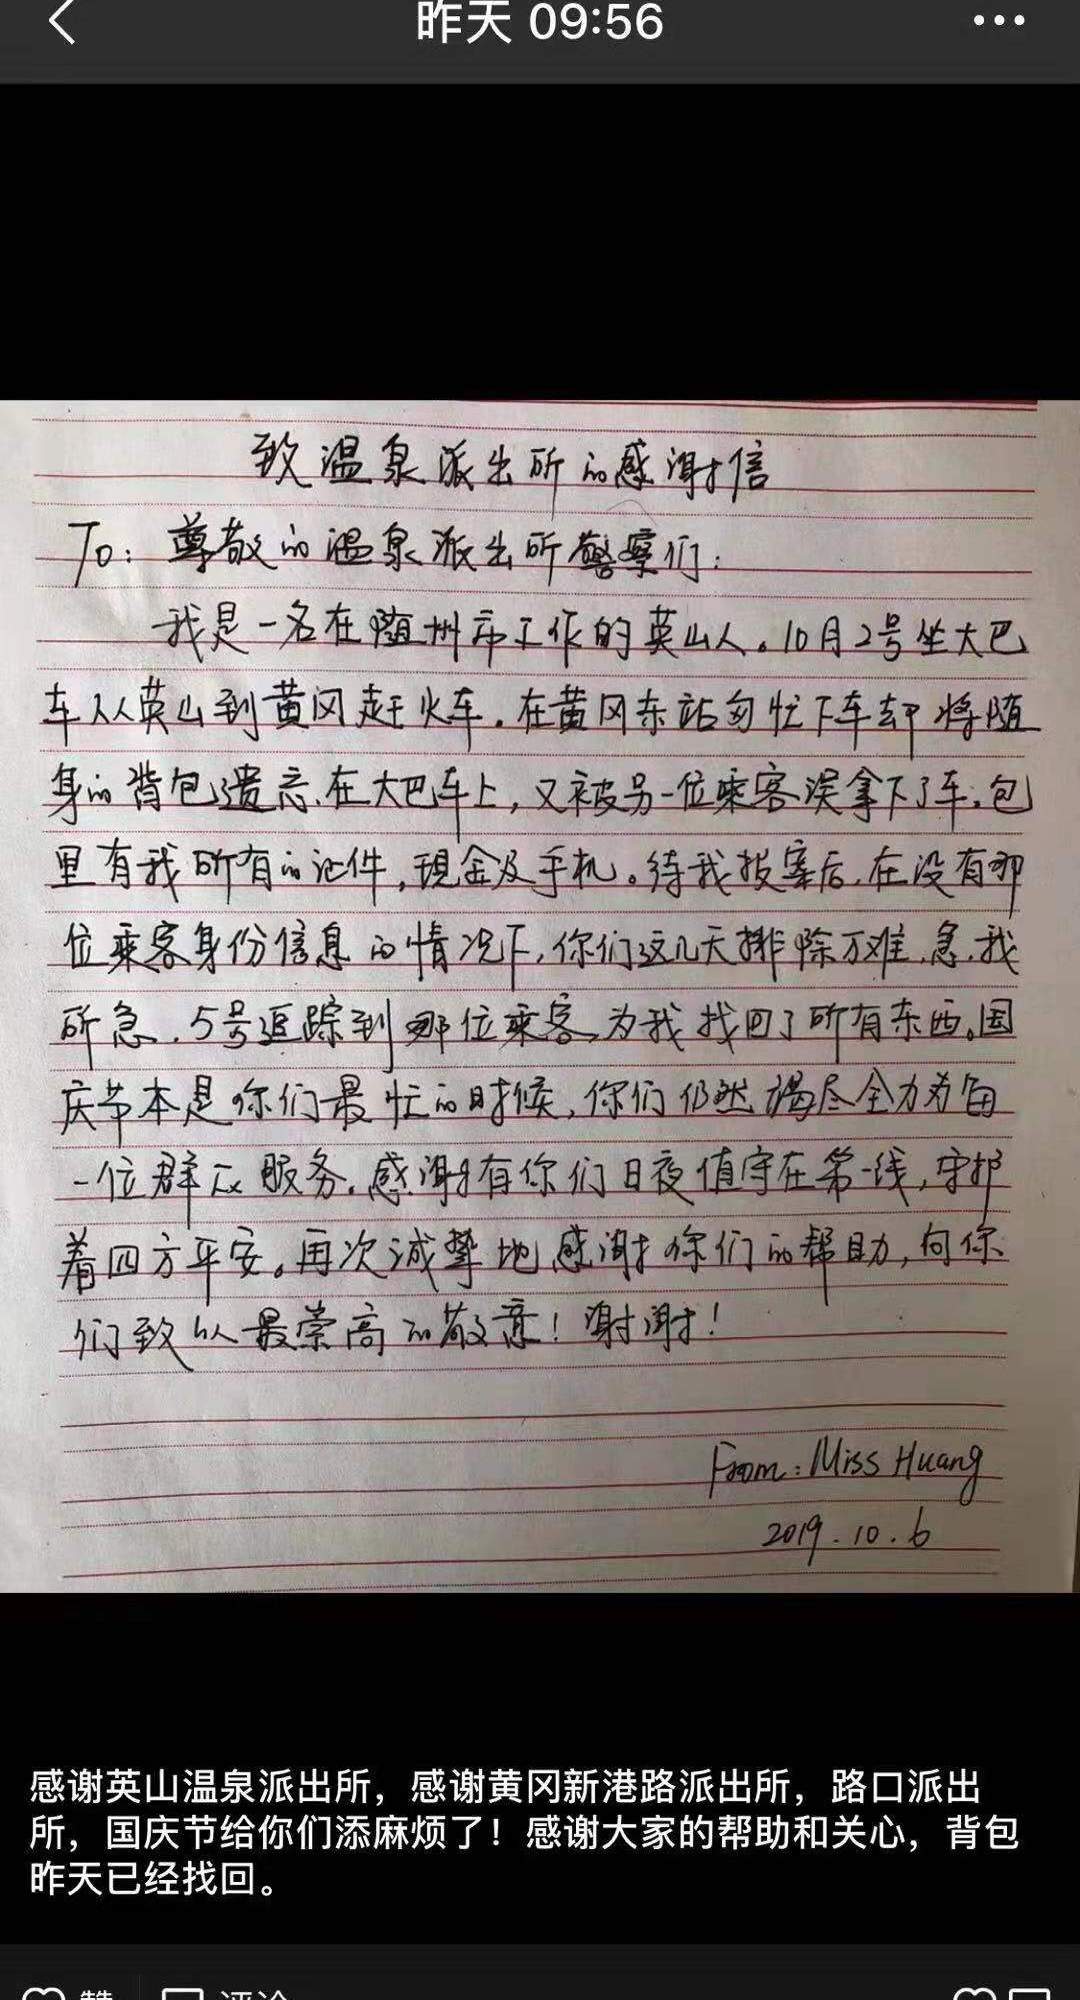 昨天 09:56
致温泉派出所的感谢信
To：尊敬的温泉派出所警察们：
我是一名在随州市工作的英山人。10月2号坐大巴
车从英山到黄冈赶火车。在黄冈东站匆忙下车却将随
身的背包遗忘在大巴车上，又被另一位乘客误拿下了车。包
里有我所有的证件，现金及手机。待我报案后，在没有那
位乘客身份信息的情况下，你们这几天排除万难，急我
所急，5号追踪到那位乘客，为我找回了所有东西。国
庆节本是你们最忙的时候，你们仍然竭尽全力为每
一位群众服务。感谢有你们日夜值守在第一线，守护
着四方平安。再次诚挚地感谢你们的帮助，向你
们致以最崇高的敬意！谢谢！
From：Miss Huang
2019.10.6
感谢英山温泉派出所，感谢黄冈新港路派出所，路口派出
所，国庆节给你们添麻烦了！感谢大家的帮助和关心，背包
昨天已经找回。
赞 评论